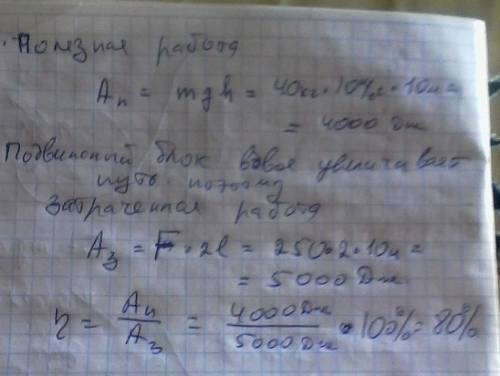 Полезная работа
Aп = mgh = 40кг·10м/с²·10м =
= 4000 Дж
Подвижный блок вдвое увеличивает
путь поэтому
Затраченная работа
Aз = F·2l = 250·2·10м =
= 5000 Дж.
η = Aп/Aз = 4000Дж/5000Дж · 100% = 80%